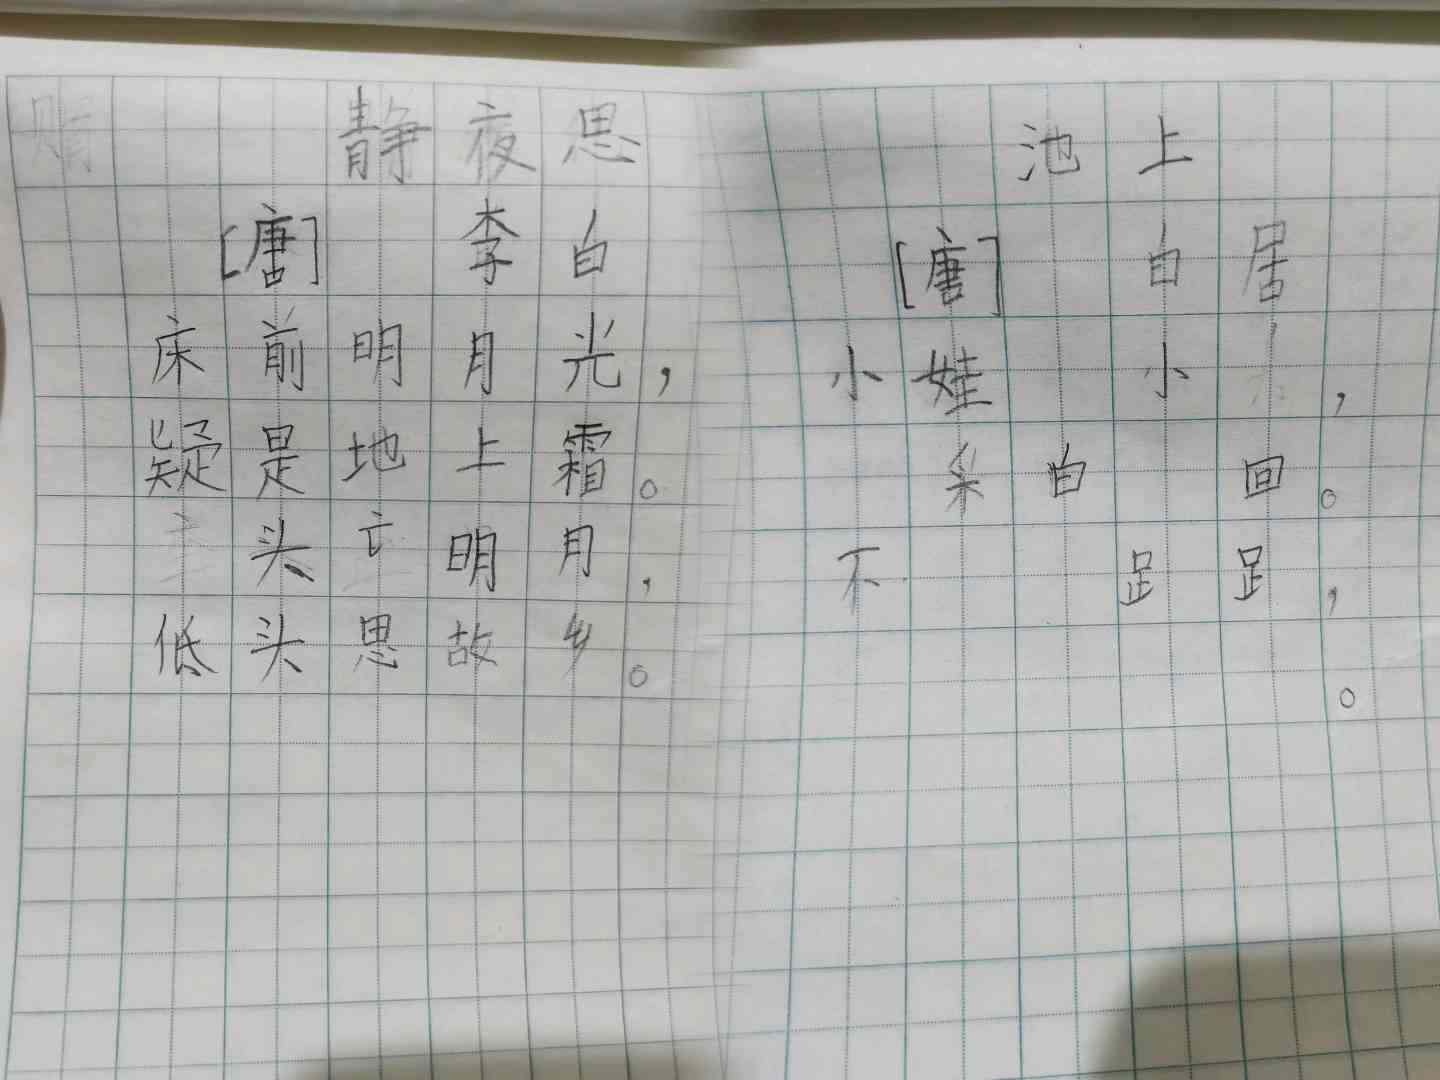 静夜思
[唐] 李白
床前明月光，
疑是地上霜。
头亡明月，
低头思故乡。
池上
[唐] 白居
小娃 小，
采白 回。
不 足足，
。